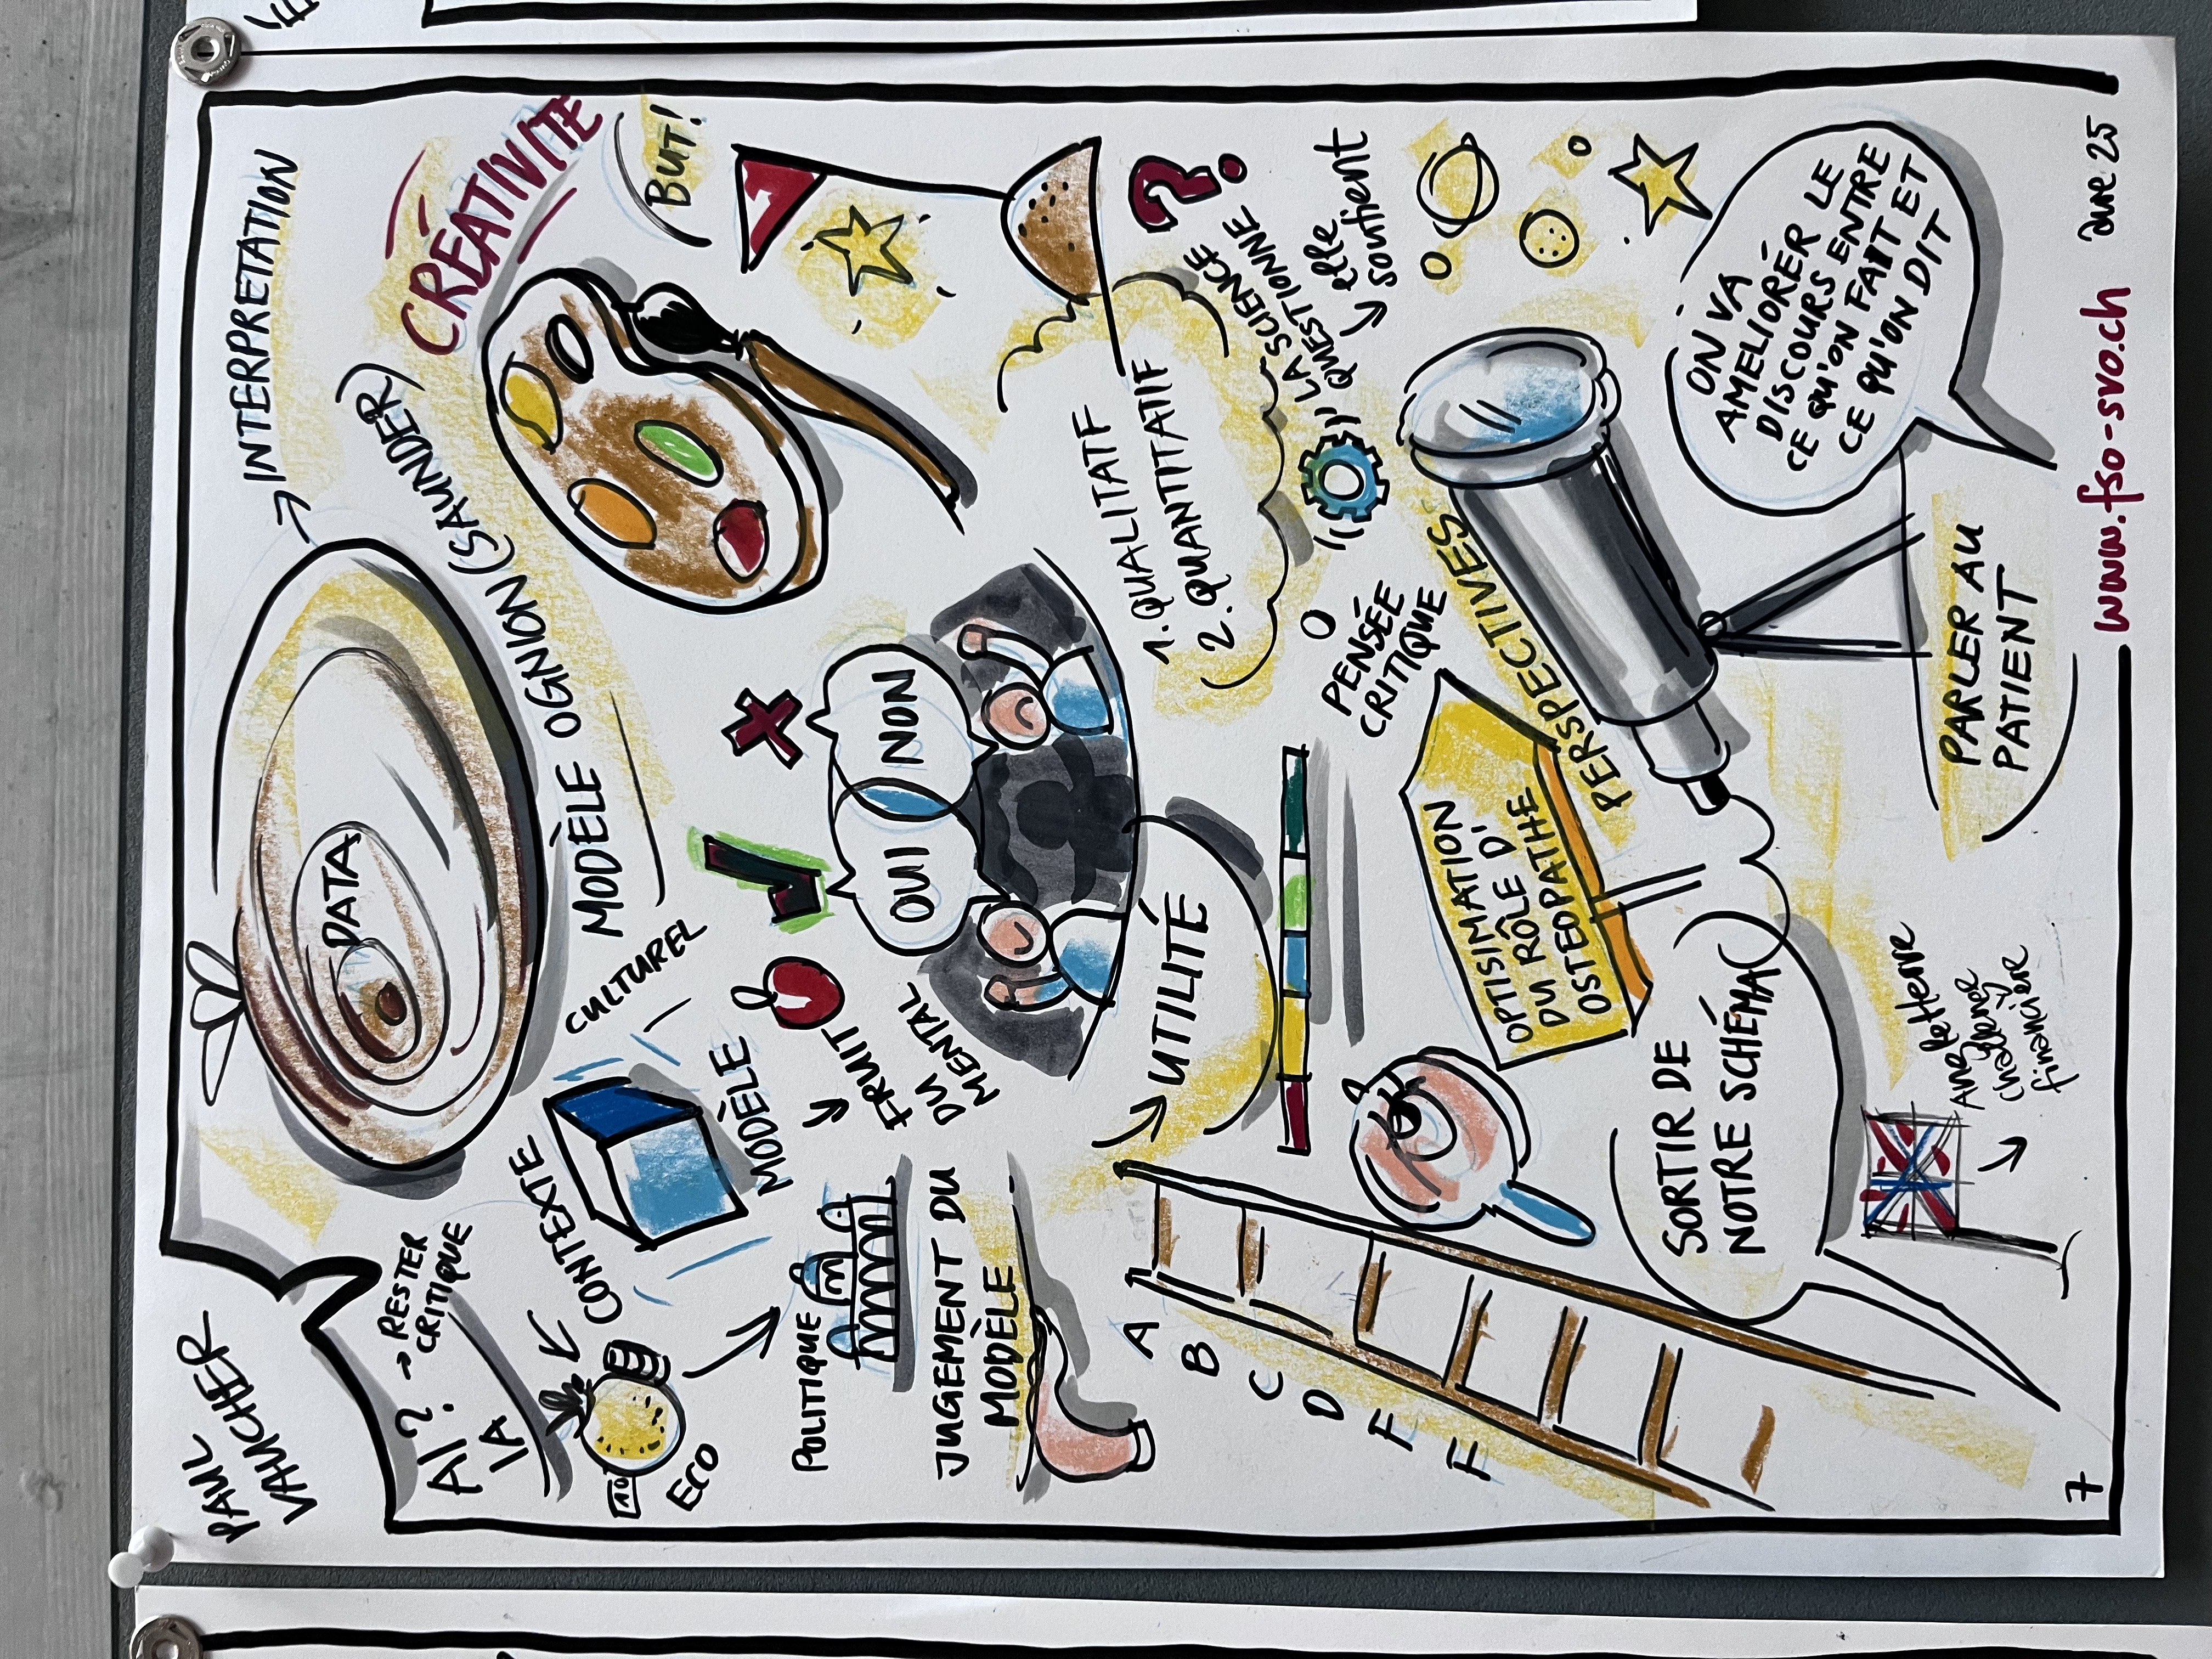 PAUL
VAUCHER
AI? → RESTER
CRITIQUE
IA
DATA
→ INTERPRETATION
MODÈLE OGNION (SAUNDER)
CRÉATIVITÉ
BUT!
CONTEXTE
CULTUREL
10
ECO
MODÈLE
→ FRUIT
DU
MENTAL
POLITIQUE
OUI
NON
JUGEMENT DU
MODÈLE
1. QUALITATIF
2. QUANTITATIF
?
LA SCIENCE
QUESTIONNE
→ elle
soutient
→ UTILITÉ
PENSÉE
CRITIQUE
A
B
C
D
F
E
OPTISIMATION
DU RÔLE D'
OSTEOPATHE
PERSPECTIVES
SORTIR DE
NOTRE SCHÉMA
ON VA
AMELIORÉR LE
DISCOURS ENTRE
CE QU'ON FAIT ET
CE QU'ON DIT
PARLER AU
PATIENT
→
challenge
financière
7
www.fso-svo.ch
June 25